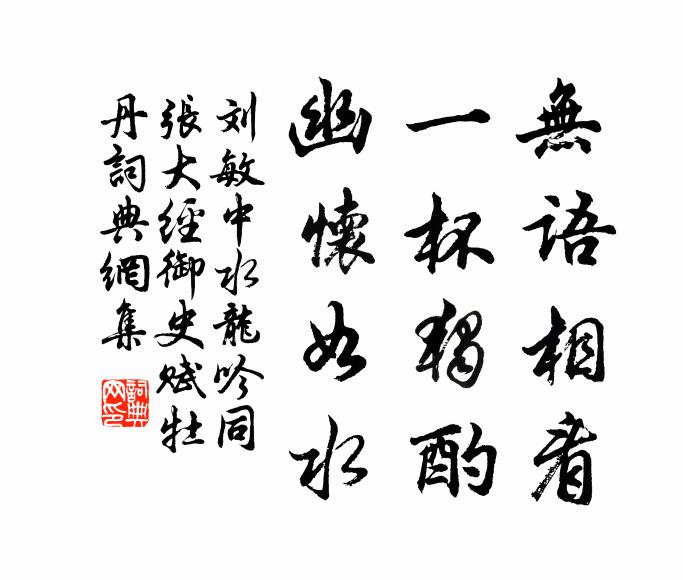 無語相看
一杯獨酌
幽懷如水
刘敏中水龍吟同
張大經御史賦牡
丹詞典網集
詞典
网印